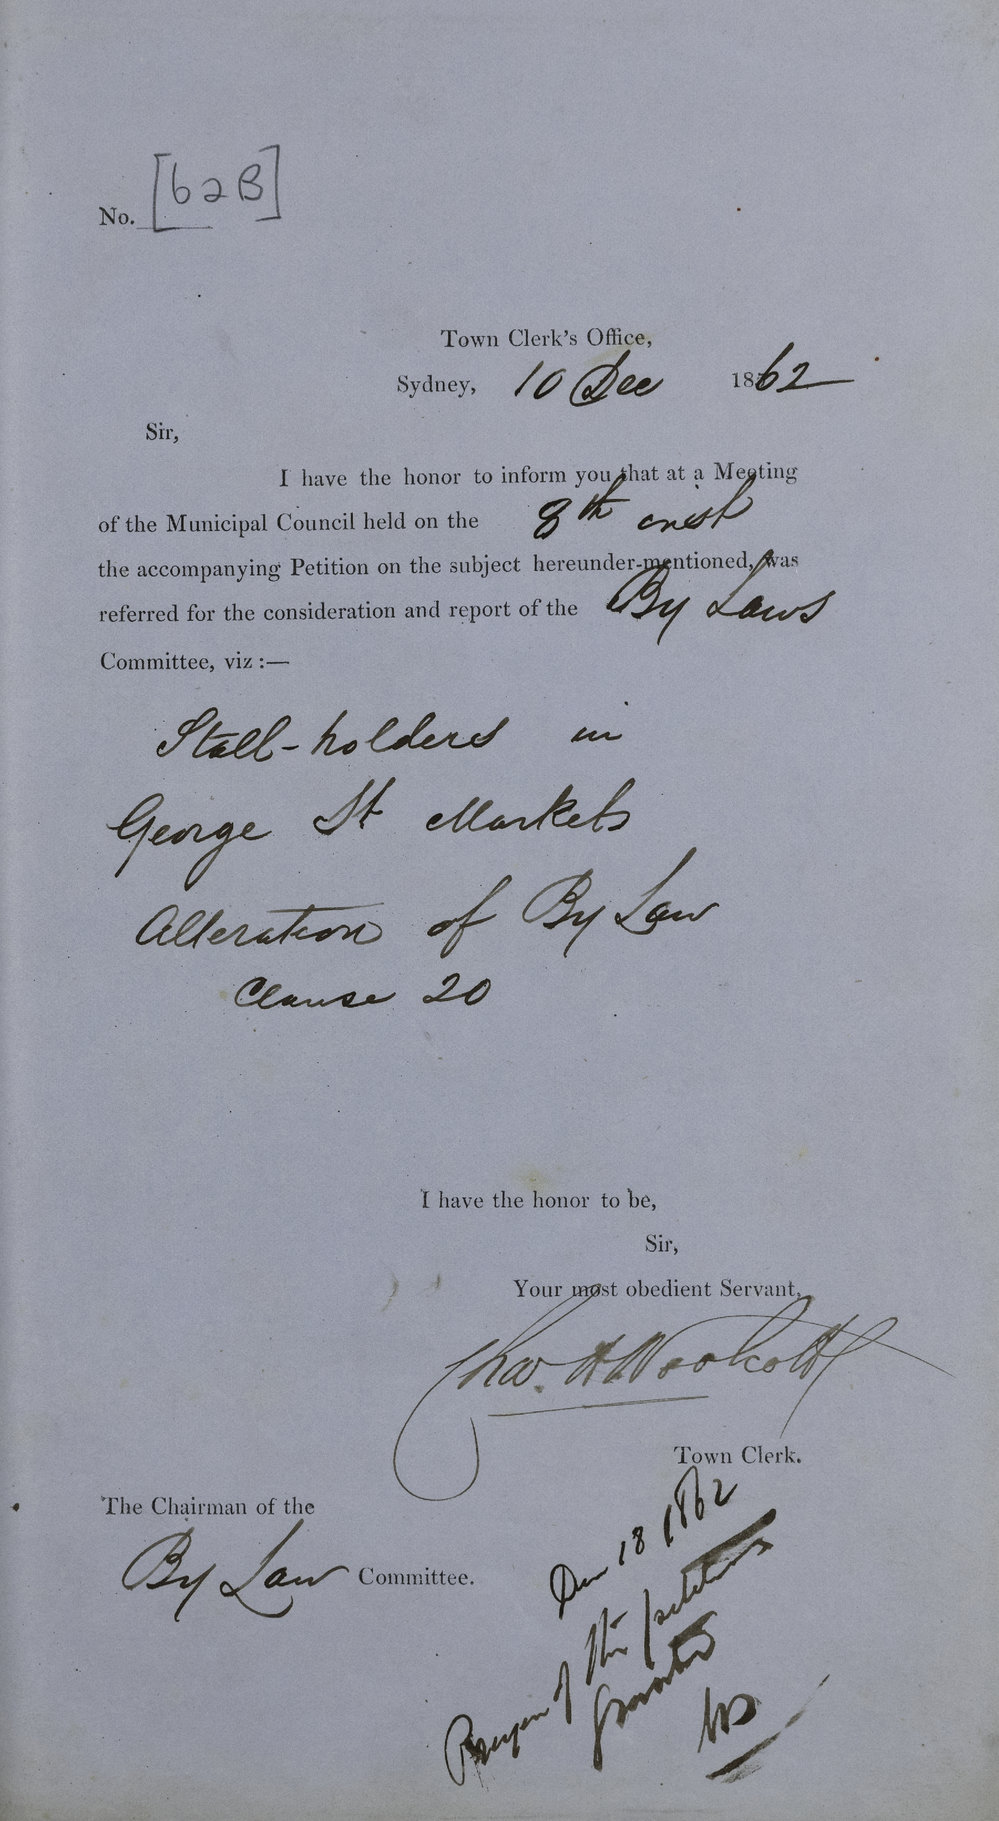 No. [62B]
Town Clerk's Office,
Sydney, 10 Dec 1862
Sir,
I have the honor to inform you that at a Meeting
of the Municipal Council held on the 8th inst
the accompanying Petition on the subject hereunder-mentioned, was
referred for the consideration and report of the By Laws
Committee, viz :—
Stall-holders in
George St Markets
Alteration of By Law
Clause 20
I have the honor to be,
Sir,
Your most obedient Servant,
Chas. H Woolcott
Town Clerk.
The Chairman of the
By Law Committee.
18 1862
Prayer of the petitions
Granted